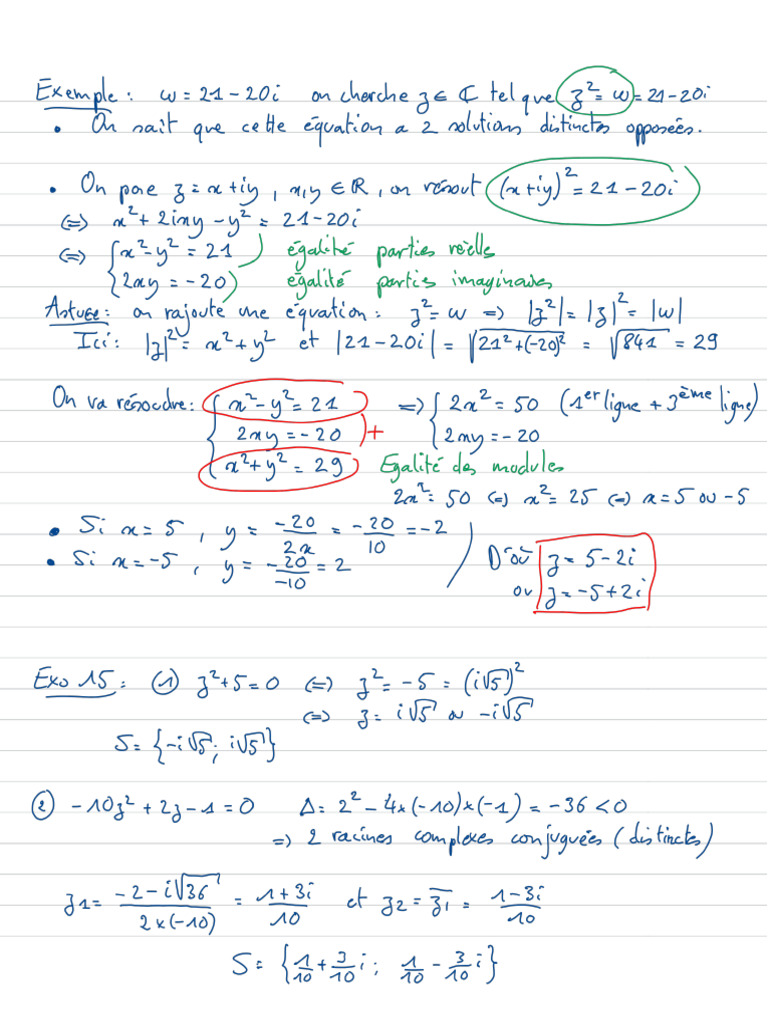 Exemple : w = 21 - 20i on cherche z ∈ ℂ tel que z² = w = 21 - 20i
• On sait que cette équation a 2 solutions distinctes opposées.
• On pose z = x + iy , x,y ∈ ℝ, on résout (x + iy)² = 21 - 20i
(⇔) x² + 2ixy - y² = 21 - 20i
(⇔) { x² - y² = 21 ) égalité parties réelles
{ 2xy = -20 ) égalité parties imaginaires
Astuce : on rajoute une équation : z² = w ⇒ |z²| = |z|² = |w|
Ici : |z|² = x² + y² et |21 - 20i| = √(21² + (-20)²) = √841 = 29
On va résoudre : { x² - y² = 21 ⇒ { 2x² = 50 (1er ligne + 3ème ligne)
{ 2xy = -20 + { 2xy = -20
{ x² + y² = 29 Egalité des modules
2x² = 50 ⇔ x² = 25 ⇔ x = 5 ou -5
• Si x = 5 , y = -20/2x = -20/10 = -2
• Si x = -5 , y = -20/-10 = 2
D'où z = 5 - 2i
ou z = -5 + 2i
Exo 15 : ① z² + 5 = 0 ⇔ z² = -5 = (i√5)²
⇔ z = i√5 ou -i√5
S = {-i√5 ; i√5}
② -10z² + 2z - 1 = 0 Δ = 2² - 4×(-10)×(-1) = -36 < 0
⇒ 2 racines complexes conjuguées (distinctes)
z1 = (-2 - i√36)/(2×(-10)) = (1 + 3i)/10 et z2 = z̄1 = (1 - 3i)/10
S = {1/10 + 3/10 i ; 1/10 - 3/10 i}